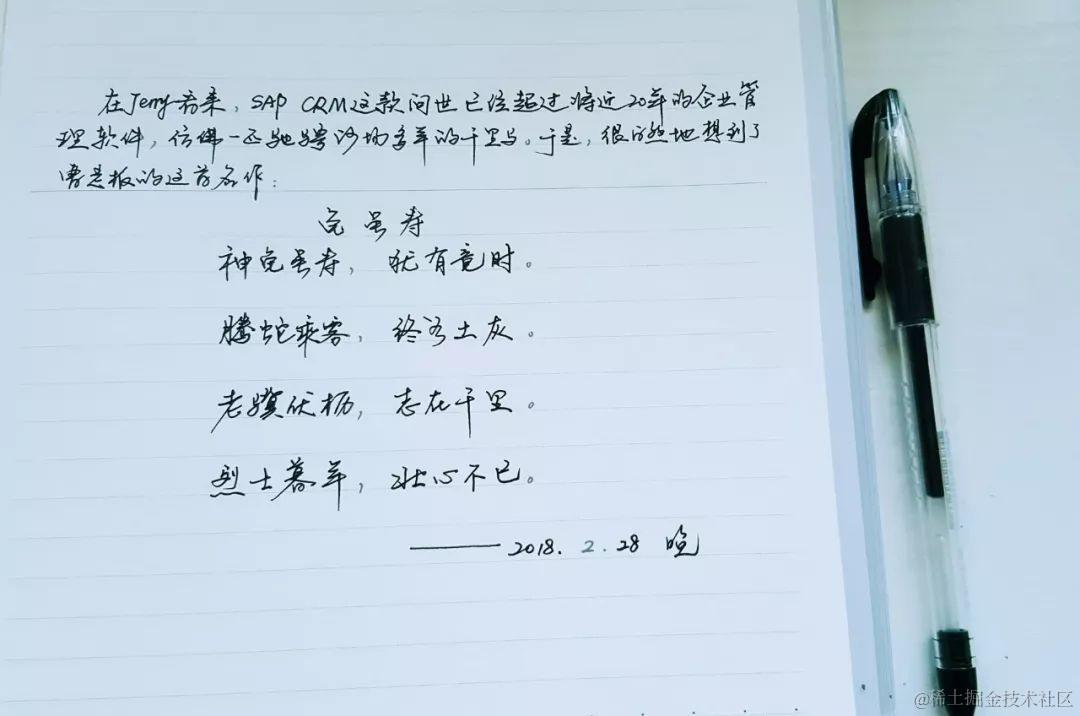 在Jerry看来，SAP CRM这款问世已经超过将近20年的企业管
理软件，仿佛一匹驰骋沙场多年的千里马。于是，很自然地想到了
曹老板的这首名作：
龟虽寿
神龟虽寿，犹有竟时。
腾蛇乘雾，终为土灰。
老骥伏枥，志在千里。
烈士暮年，壮心不已。
——2018.2.28 晚
@稀土掘金技术社区